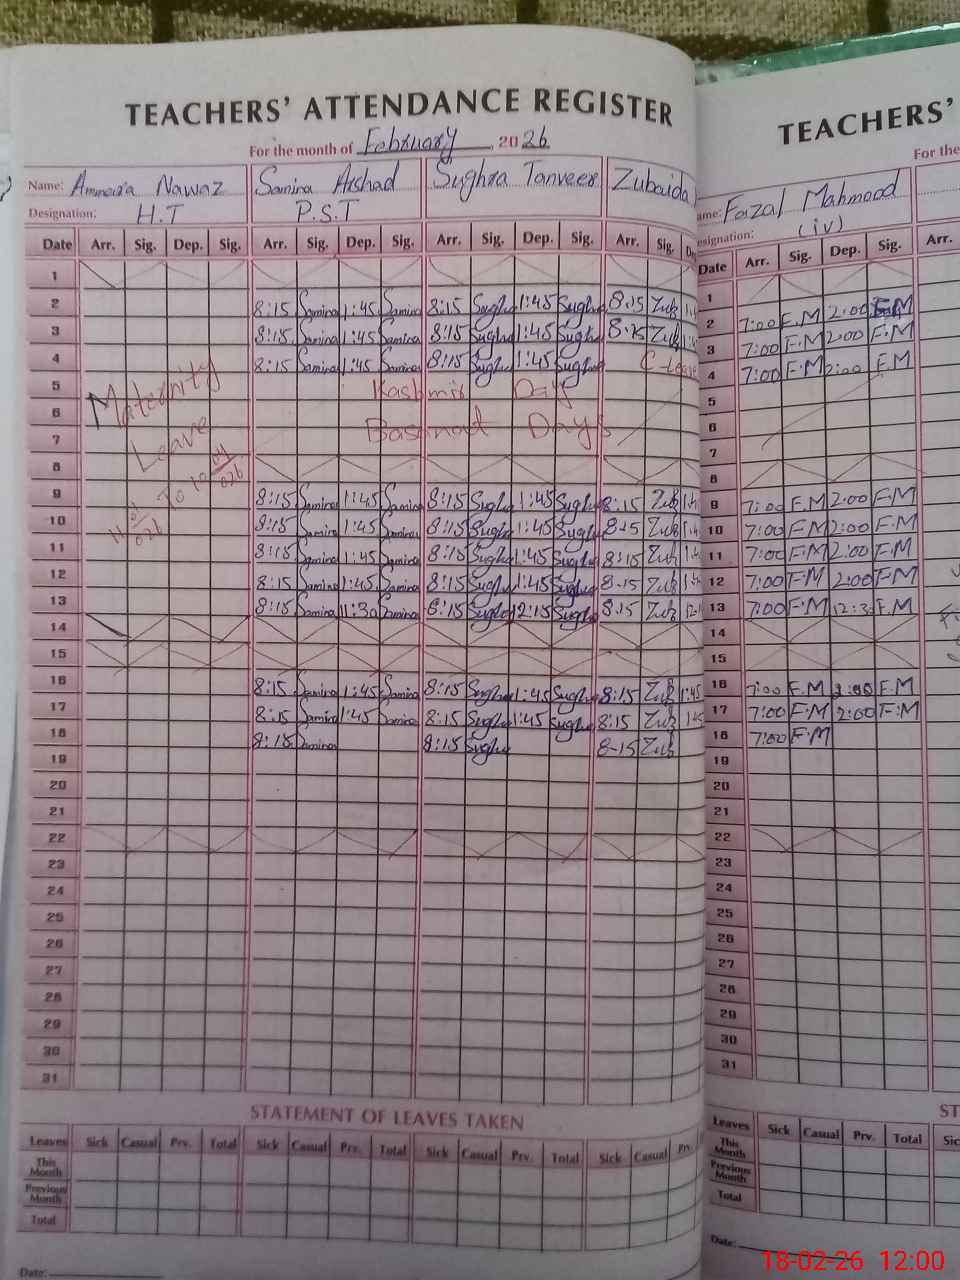 TEACHERS' ATTENDANCE REGISTER
For the month of February, 2026
Name: Ammara Nawaz Samina Arshad Sughra Tanveer Zubaida
Designation: H.T P.S.T
Date Arr. Sig. Dep. Sig. Arr. Sig. Dep. Sig. Arr. Sig. Dep. Sig. Arr. Sig.
1
2 8:15 Samina 1:45 Samina 8:15 Sughra 1:45 Sughra 8:15 Zub
3 8:15 Samina 1:45 Samina 8:15 Sughra 1:45 Sughra Zub
4 8:15 Samina 1:45 Samina 8:15 Sughra 1:45 Sughra C-Leave
5 Kashmir Day
6 Basanat Days
7
8
Maternity
Leave
To
9 8:15 Samina 1:45 Samina 8:15 Sughra 1:45 Sughra 8:15 Zub
10 8:15 Samina 1:45 Samina 8:15 Sughra 1:45 Sughra Zub
11 8:15 Samina 1:45 Samina 8:15 Sughra 1:45 Sughra 8:15 Zub
12 8:15 Samina 1:45 Samina 8:15 Sughra 1:45 Sughra 8-15 Zub
13 8:15 Samina Samina 8:15 Sughra 12:15 Sughra 8:15 Zub
14
15
16 8:15 Samina 1:45 Samina 8:15 Sughra 1:45 Sughra 8:15 Zub 1:45
17 8:15 Samina 1:45 Samina 8:15 Sughra 1:45 Sughra 8:15 Zub
18 8:15 Samina 8:15 Sughra 8-15 Zub
19
20
21
22
23
24
25
26
27
28
29
30
31
STATEMENT OF LEAVES TAKEN
Leaves Sick Casual Prv. Total Sick Casual Prv. Total Sick Casual Prv. Total Sick Casual Prv.
This Month
Previous Month
Total
Date:
TEACHERS'
For the
Name: Faizal Mahmood
Designation: (iv)
Date Arr. Sig. Dep. Sig. Arr.
1
2 7:00 F.M 2:00 F.M
3 7:00 F.M 2:00 F.M
4 7:00 F.M 2:00 F.M
5
6
7
8
9 7:00 F.M 2:00 F.M
10 7:00 F.M 2:00 F.M
11 7:00 F.M 2:00 F.M
12 7:00 F.M 2:00 F.M
13 7:00 F.M 12:30 F.M
14
15
16 7:00 F.M 2:00 F.M
17 7:00 F.M 2:00 F.M
18 7:00 F.M
19
20
21
22
23
24
25
26
27
28
29
30
31
ST
Leaves Sick Casual Prv. Total Sic
This Month
Previous Month
Total
Date:
18-02-26 12:00